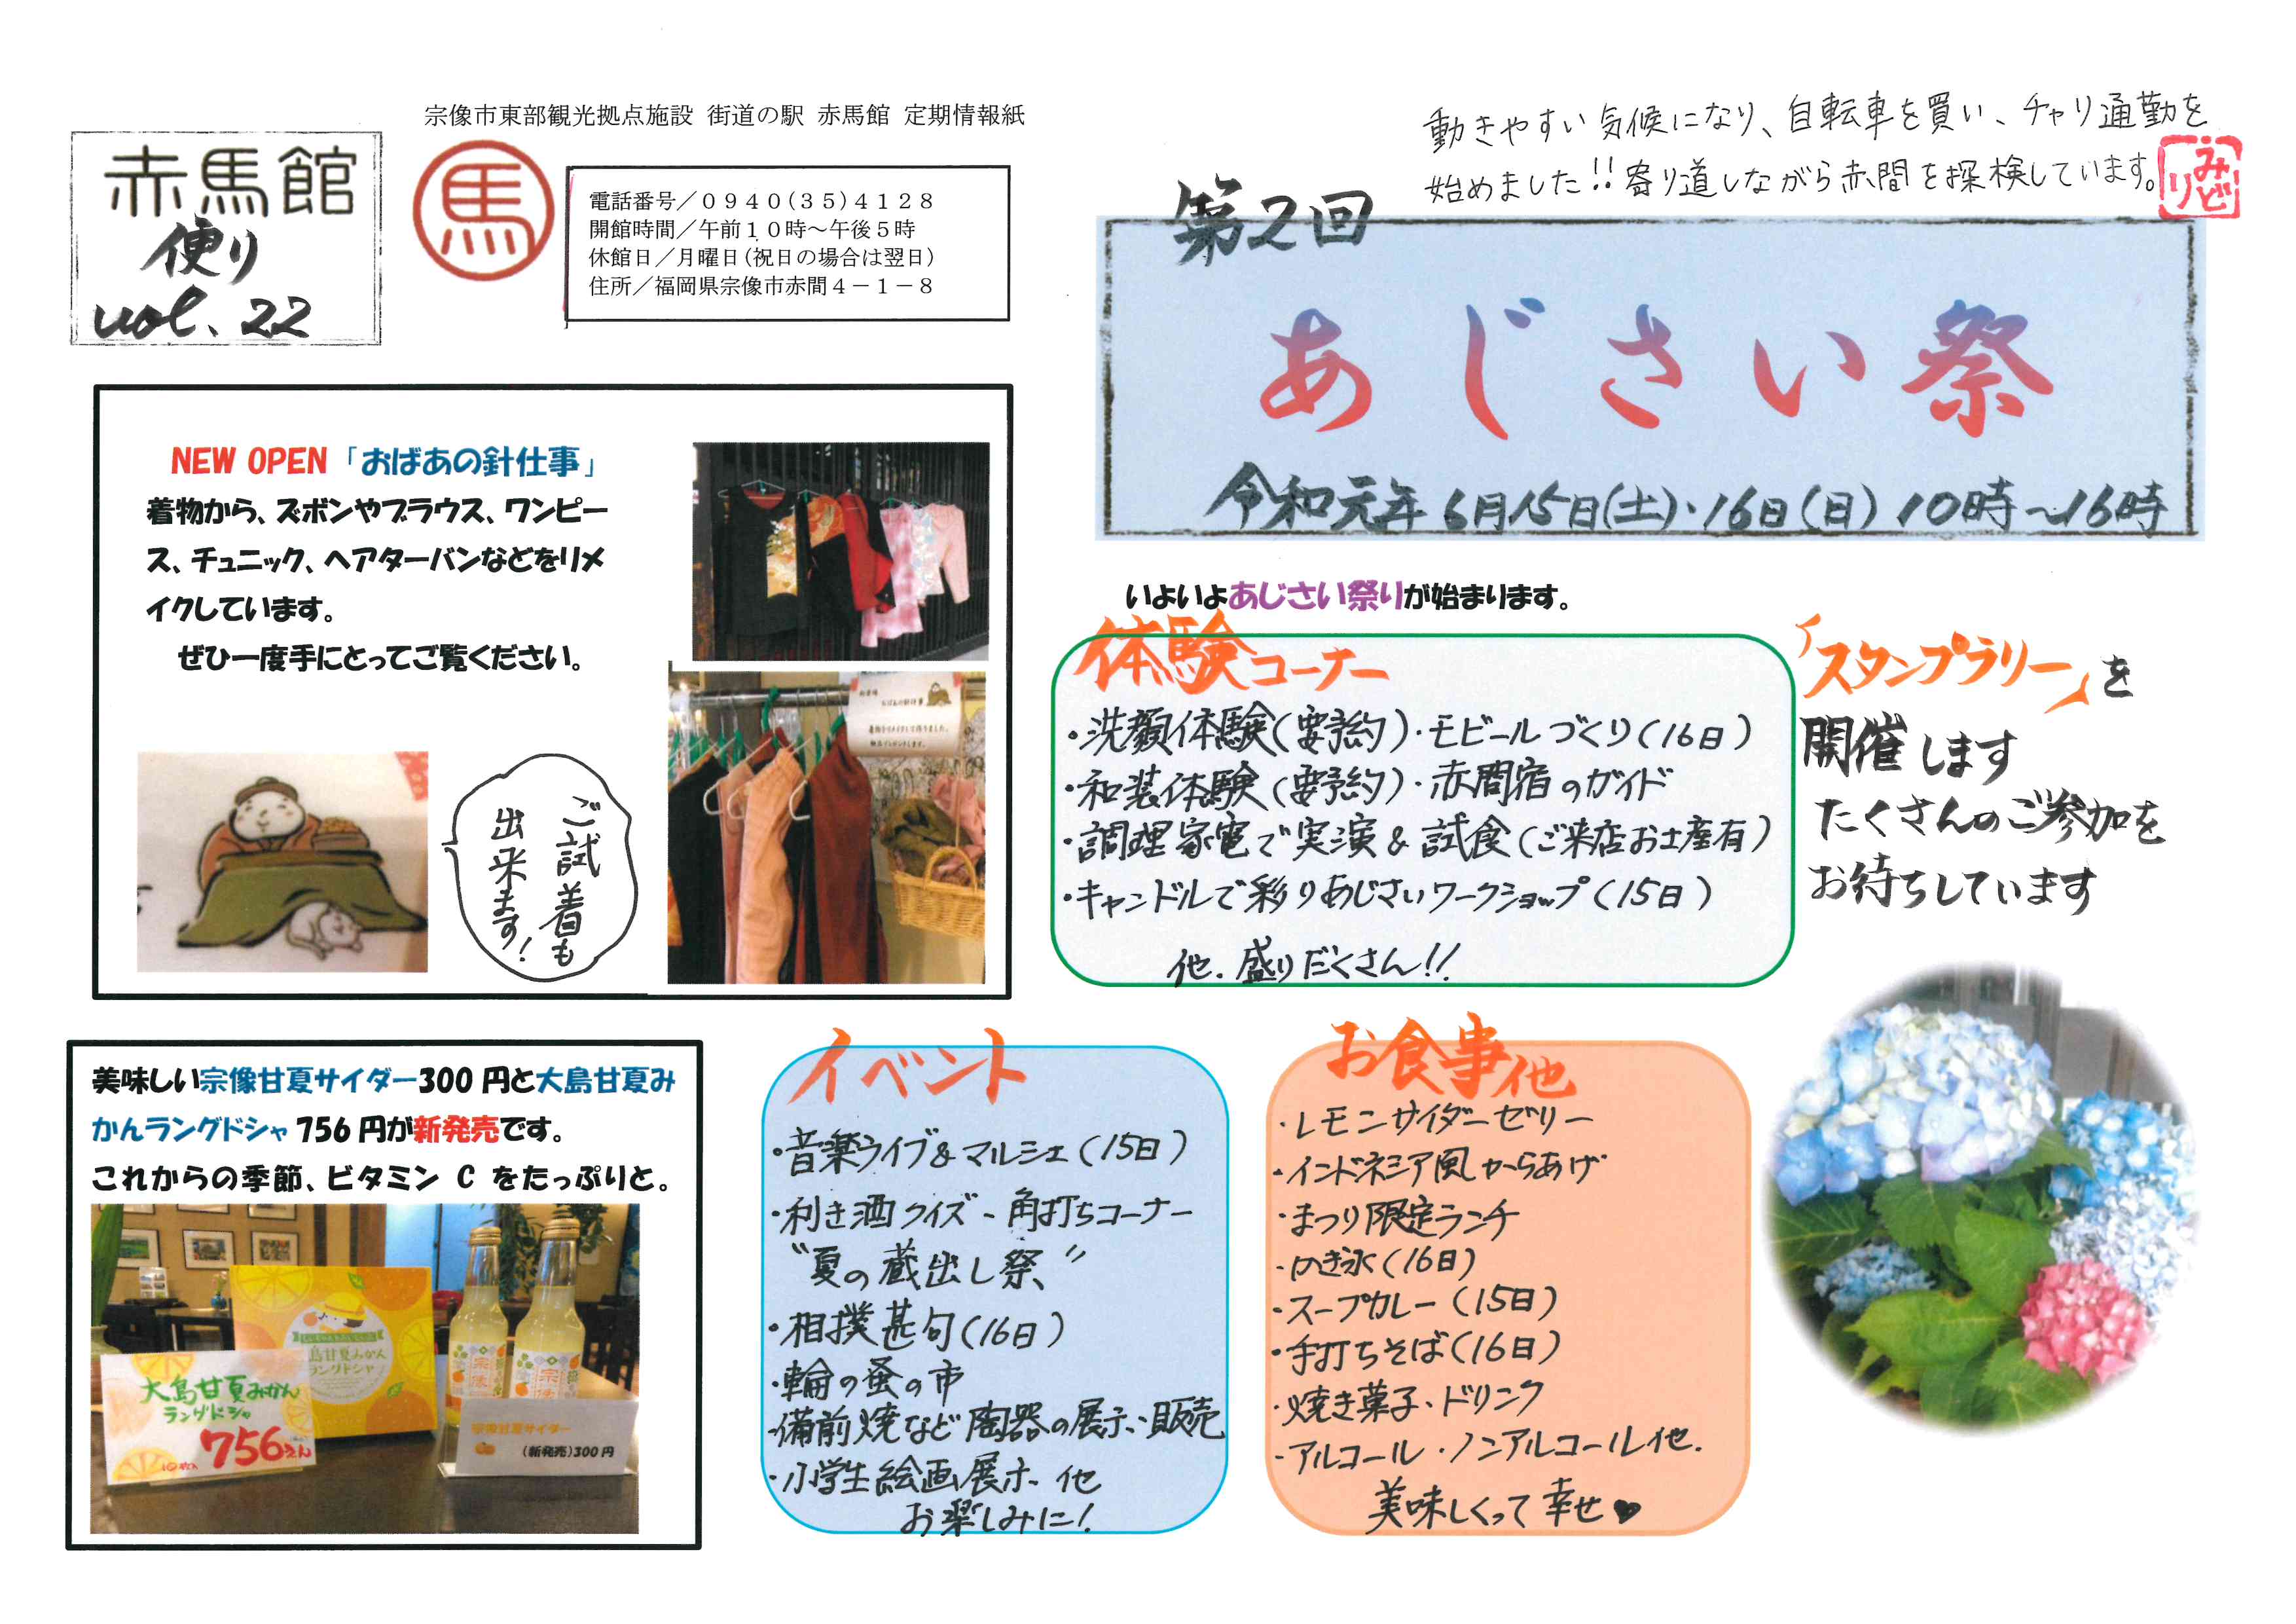 宗像市東部観光拠点施設 街道の駅 赤馬館 定期情報紙
赤馬館
便り
vol.22
馬
電話番号／０９４０(３５)４１２８
開館時間／午前１０時～午後５時
休館日／月曜日(祝日の場合は翌日)
住所／福岡県宗像市赤間４－１－８
動きやすい気候になり、自転車を買い、チャリ通勤を
始めました!!寄り道しながら赤間を探検しています。
みどり
第2回
あじさい祭
令和元年 6月15日(土)・16日(日) 10時～16時
NEW OPEN「おばあの針仕事」
着物から、ズボンやブラウス、ワンピー
ス、チュニック、ヘアターバンなどをリメ
イクしています。
ぜひ一度手にとってご覧ください。
ご試着も
出来ます!
いよいよあじさい祭りが始まります。
体験コーナー
・洗顔体験(要予約)・モビールづくり(16日)
・和装体験(要予約)・赤間宿のガイド
・調理家電で実演&試食(ご来店お土産有)
・キャンドルで彩りあじさいワークショップ(15日)
他.盛りだくさん!!
「スタンプラリー」を
開催します
たくさんのご参加を
お待ちしています
美味しい宗像甘夏サイダー300円と大島甘夏み
かんラングドシャ 756円が新発売です。
これからの季節、ビタミン C をたっぷりと。
大島甘夏みかん
ラングドシャ
756えん
島甘夏みかん
ラングドシャ
宗像
宗像甘夏サイダー
(新発売)300円
イベント
・音楽ライブ&マルシェ(15日)
・利き酒クイズ、角打ちコーナー
"夏の蔵出し祭"
・相撲甚句(16日)
・輪の蚤の市
・備前焼など陶器の展示、販売
・小学生絵画展示、他
お楽しみに!
お食事他
・レモンサイダーゼリー
・インドネシア風からあげ
・まつり限定ランチ
・かき氷(16日)
・スープカレー(15日)
・手打ちそば(16日)
・焼き菓子・ドリンク
・アルコール・ノンアルコール他.
美味しくって幸せ♥